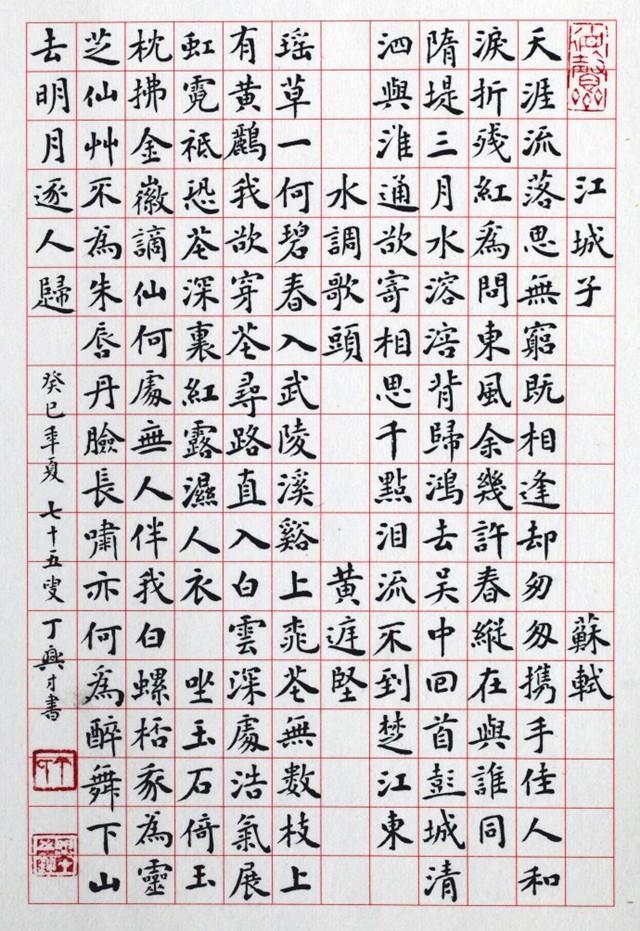 江城子 蘇軾
天涯流落思無窮既相逢却匆匆携手佳人和
淚折残紅爲問東風余幾許春縱在與誰同
隋堤三月水溶溶背歸鴻去吴中回首彭城清
泗與淮通欲寄相思千點泪流不到楚江東
水調歌頭 黄庭堅
瑶草一何碧春入武陵溪谿上桃花無数枝上
有黄鸝我欲穿花尋路直入白雲深處浩氣展
虹霓祗恐花深裏紅露濕人衣 坐玉石倚玉
枕拂金徽謫仙何處無人伴我白螺桮我為靈
芝仙艸不為朱唇丹臉長嘯亦何爲醉舞下山
去明月逐人歸
癸巳年夏 七十五叟 丁興才書